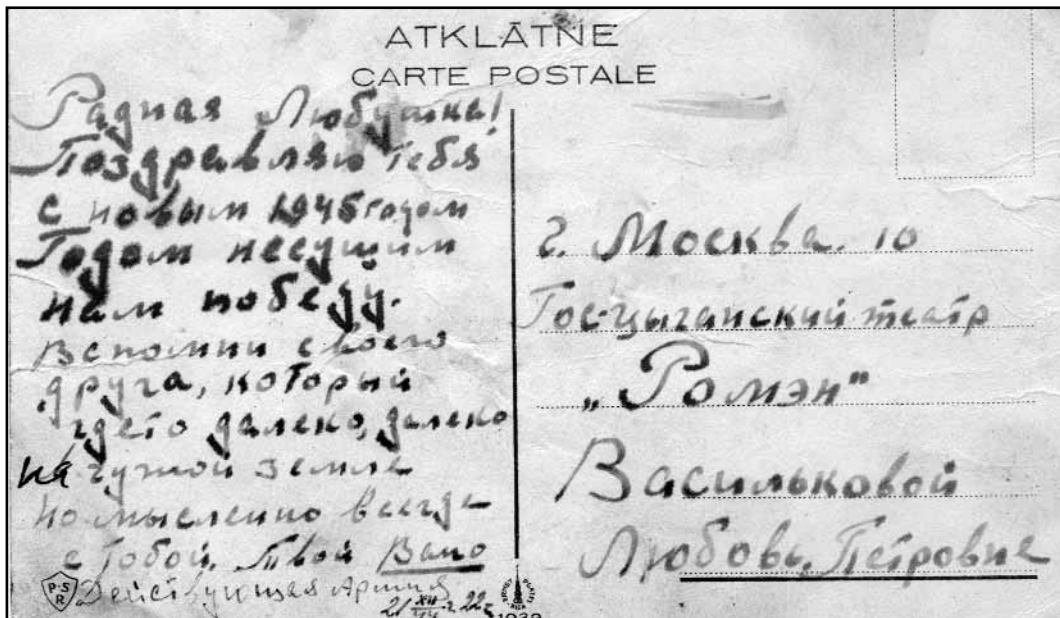 ATKLĀTNE
CARTE POSTALE
Радная Любушка!
Поздравляю Тебя
с новым 1945 годом
Годом несущим
нам победу.
Вспомни своего
друга, который
гдето далеко, далеко
на чужой земле
Но мысленно всегда
с Тобой. Твой Вано
Действующая Армия
21 XII 44 г. 22 ч
г. Москва. 10
Гос-цыганский театр
„Ромэн"
Васильковой
Любовь, Петровне
P.S.R
1939